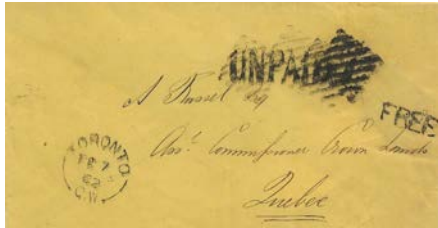 UNPAID
A Russel Esq
FREE
Asst. Commissioner Crown Lands
Quebec
TORONTO
FE 7
62
C.W.